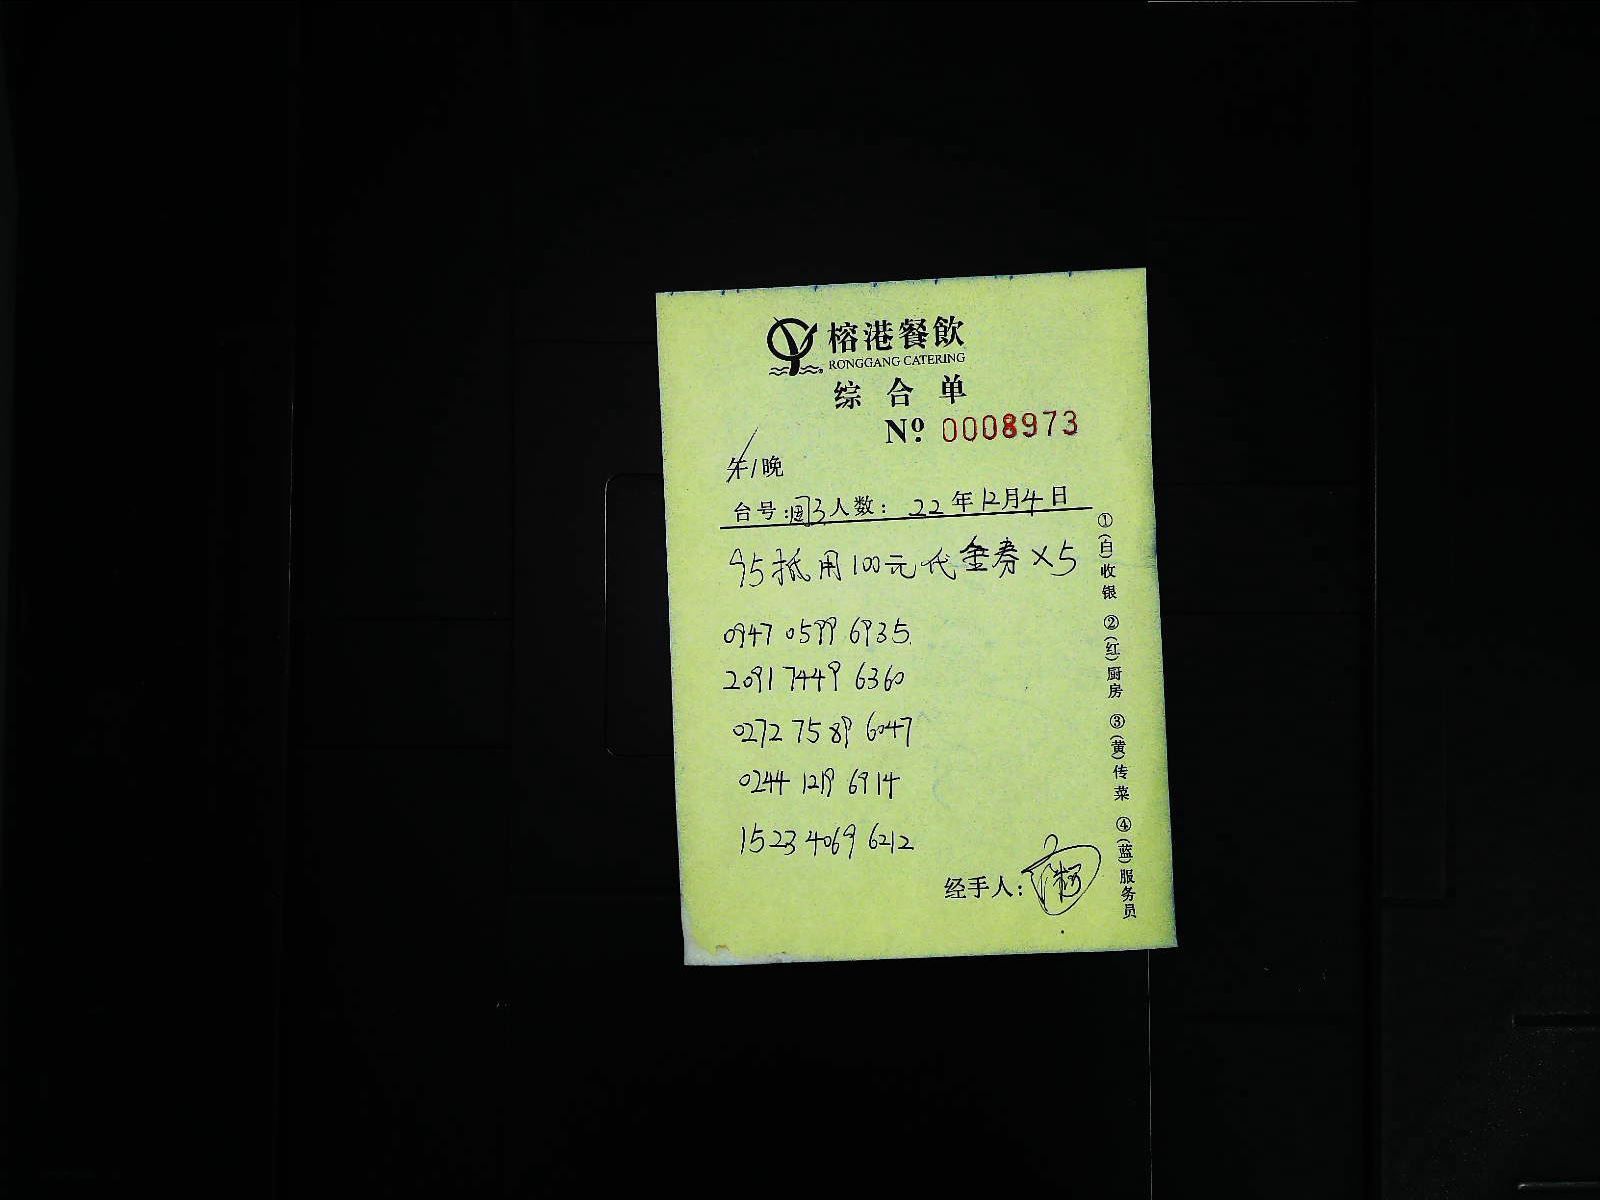 榕港餐飲
RONGGANG CATERING
综合单
Nº 0008973
午/晚
台号: 国3 人数: 22年12月4日
95抵用100元代金券×5
0947 0599 6935
2091 7449 6360
0272 7589 6047
0244 1219 6914
1523 4069 6212
经手人:
①(白)收银 ②(红)厨房 ③(黄)传菜 ④(蓝)服务员